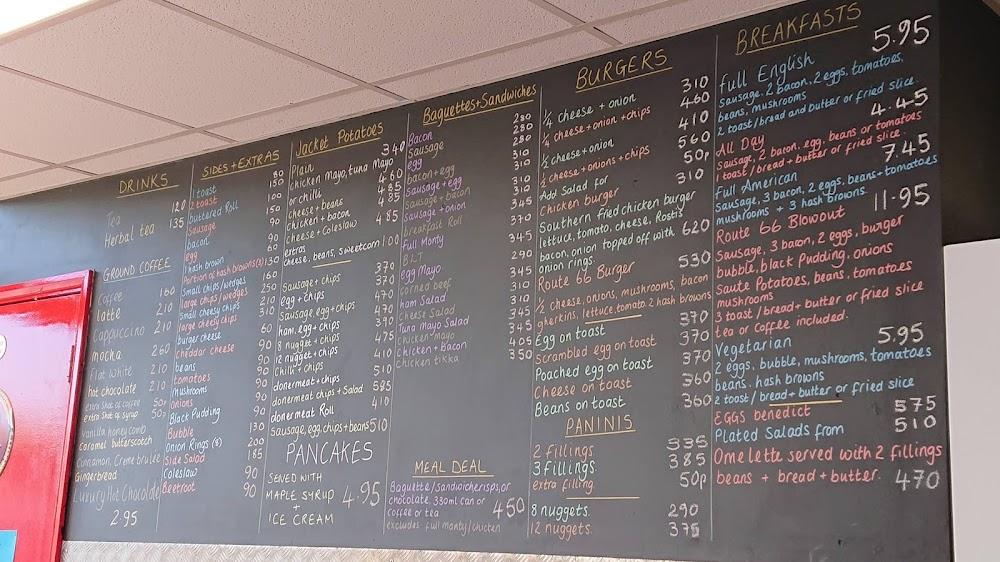 DRINKS
Tea 120
Herbal tea 135
GROUND COFFEE
Coffee 160
latte 210
Cappuccino 210
mocha 260
Flat White 210
hot chocolate 210
extra Shot of coffee 50p
extra Shot of syrup 50p
Vanilla honeycomb
Caramel butterscotch
Cinnamon, Creme brulee
Gingerbread
Luxury Hot Chocolate
2.95
SIDES + EXTRAS
1 toast 80
2 toast 150
buttered Roll
Sausage
bacon
egg
1 hash brown
Portion of hash browns(3) 130
Small chips/wedges
large chips/wedges
Small cheesy chips
large cheesy chips
burger cheese
Cheddar cheese
beans
tomatoes
mushrooms
Onions
Black Pudding
Bubble
Onion Rings (8)
Side Salad
Coleslaw 90
Beetroot 90
Jacket Potatoes
Plain 340
chicken Mayo, tuna Mayo
or chilli 460
cheese + beans 485
chicken + bacon 485
cheese + Coleslaw 485
extras
cheese, beans, sweetcorn 100
Sausage + chips 370
egg + chips
Sausage, egg + chips
ham, egg + chips
8 nugget + chips
12 nugget + chips
Chilli + chips
donermeat + chips 510
donermeat chips + Salad 585
donermeat Roll 410
Sausage, egg, chips + beans 510
PANCAKES
SERVED WITH
MAPLE SYRUP
+
ICE CREAM
4.95
Baguettes + Sandwiches
Bacon 280
Sausage 280
egg 280
bacon + egg 310
Sausage + egg 310
Sausage + bacon 310
Sausage + onion
breakfast Roll
Full Monty
BLT
egg
egg Mayo
corned beef
ham Salad
Cheese Salad
Tuna Mayo Salad
Chicken + Mayo
Chicken + Bacon
Chicken tikka
MEAL DEAL
Baguette/Sandwich crisps, or
chocolate, 330ml can or
coffee or tea 450
excludes full monty/chicken
BURGERS
¼ cheese + onion 310
¼ cheese + onion + chips 460
½ cheese + onion 410
½ cheese + onions + chips 560
Add Salad for 50p
Chicken burger 310
Southern fried chicken burger
lettuce, tomato, cheese, Rosti
bacon, onion topped off with
onion rings 620
Route 66 Burger 530
½ cheese, onions, mushrooms, bacon
gherkins, lettuce, tomato 2 hash browns
Egg on toast 370
Scrambled egg on toast 370
Poached egg on toast 370
Cheese on toast 360
Beans on toast 360
PANINIS
2 fillings 335
3 fillings 385
extra filling 50p
8 nuggets 290
12 nuggets 375
BREAKFASTS
full English 5.95
Sausage, 2 bacon, 2 eggs, tomatoes,
beans, mushrooms
2 toast/bread and butter or fried slice
All Day 4.45
Sausage, 2 bacon, egg, beans or tomatoes
1 toast/bread + butter or fried slice
Full American 7.45
Sausage, 3 bacon, 2 eggs, beans + tomatoes
mushrooms + 3 hash browns
Route 66 Blowout 11.95
Sausage, 3 bacon, 2 eggs, burger
bubble, black pudding, onions
Saute Potatoes, beans, tomatoes
mushrooms
3 toast/bread + butter or fried slice
tea or Coffee included.
Vegetarian 5.95
2 eggs, bubble, mushrooms, tomatoes
beans, hash browns
2 toast/bread + butter or fried slice
EGGS benedict 575
Plated Salads from 510
Omelette served with 2 fillings
beans + bread + butter. 470